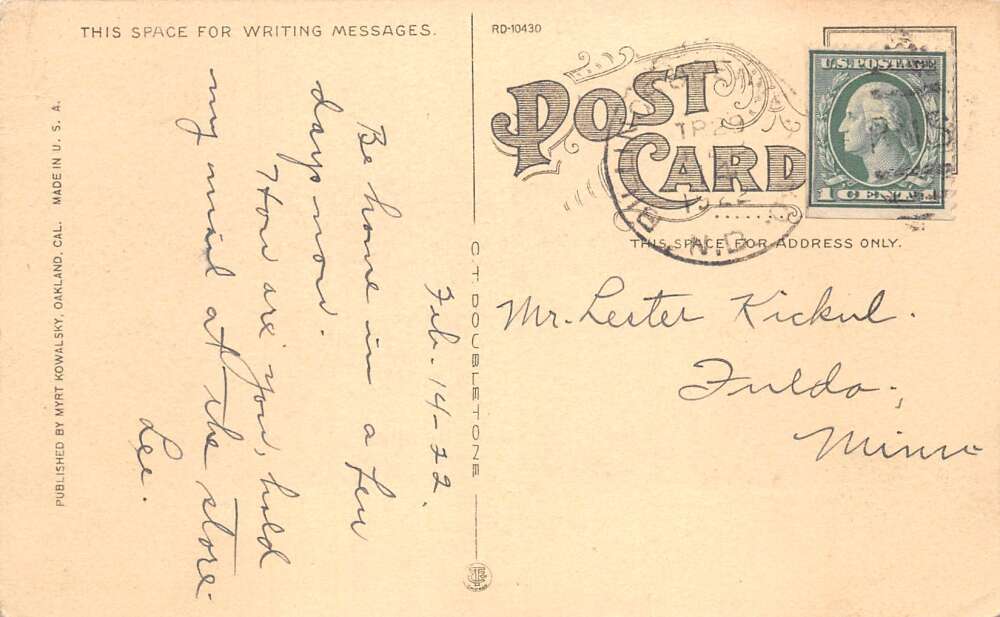 THIS SPACE FOR WRITING MESSAGES.
RD-10430
POST CARD
U.S. POSTAGE
1 CENT
TR 29
1922
N.D.
THIS SPACE FOR ADDRESS ONLY.
Feb. 14-22.
Be home in a few
days now.
How are you, hold
my mail at the store.
Lee.
Mr. Lester Kickul.
Fulda,
Minn
C.T. DOUBLETONE
PUBLISHED BY MYRT KOWALSKY, OAKLAND, CAL. MADE IN U. S. A.